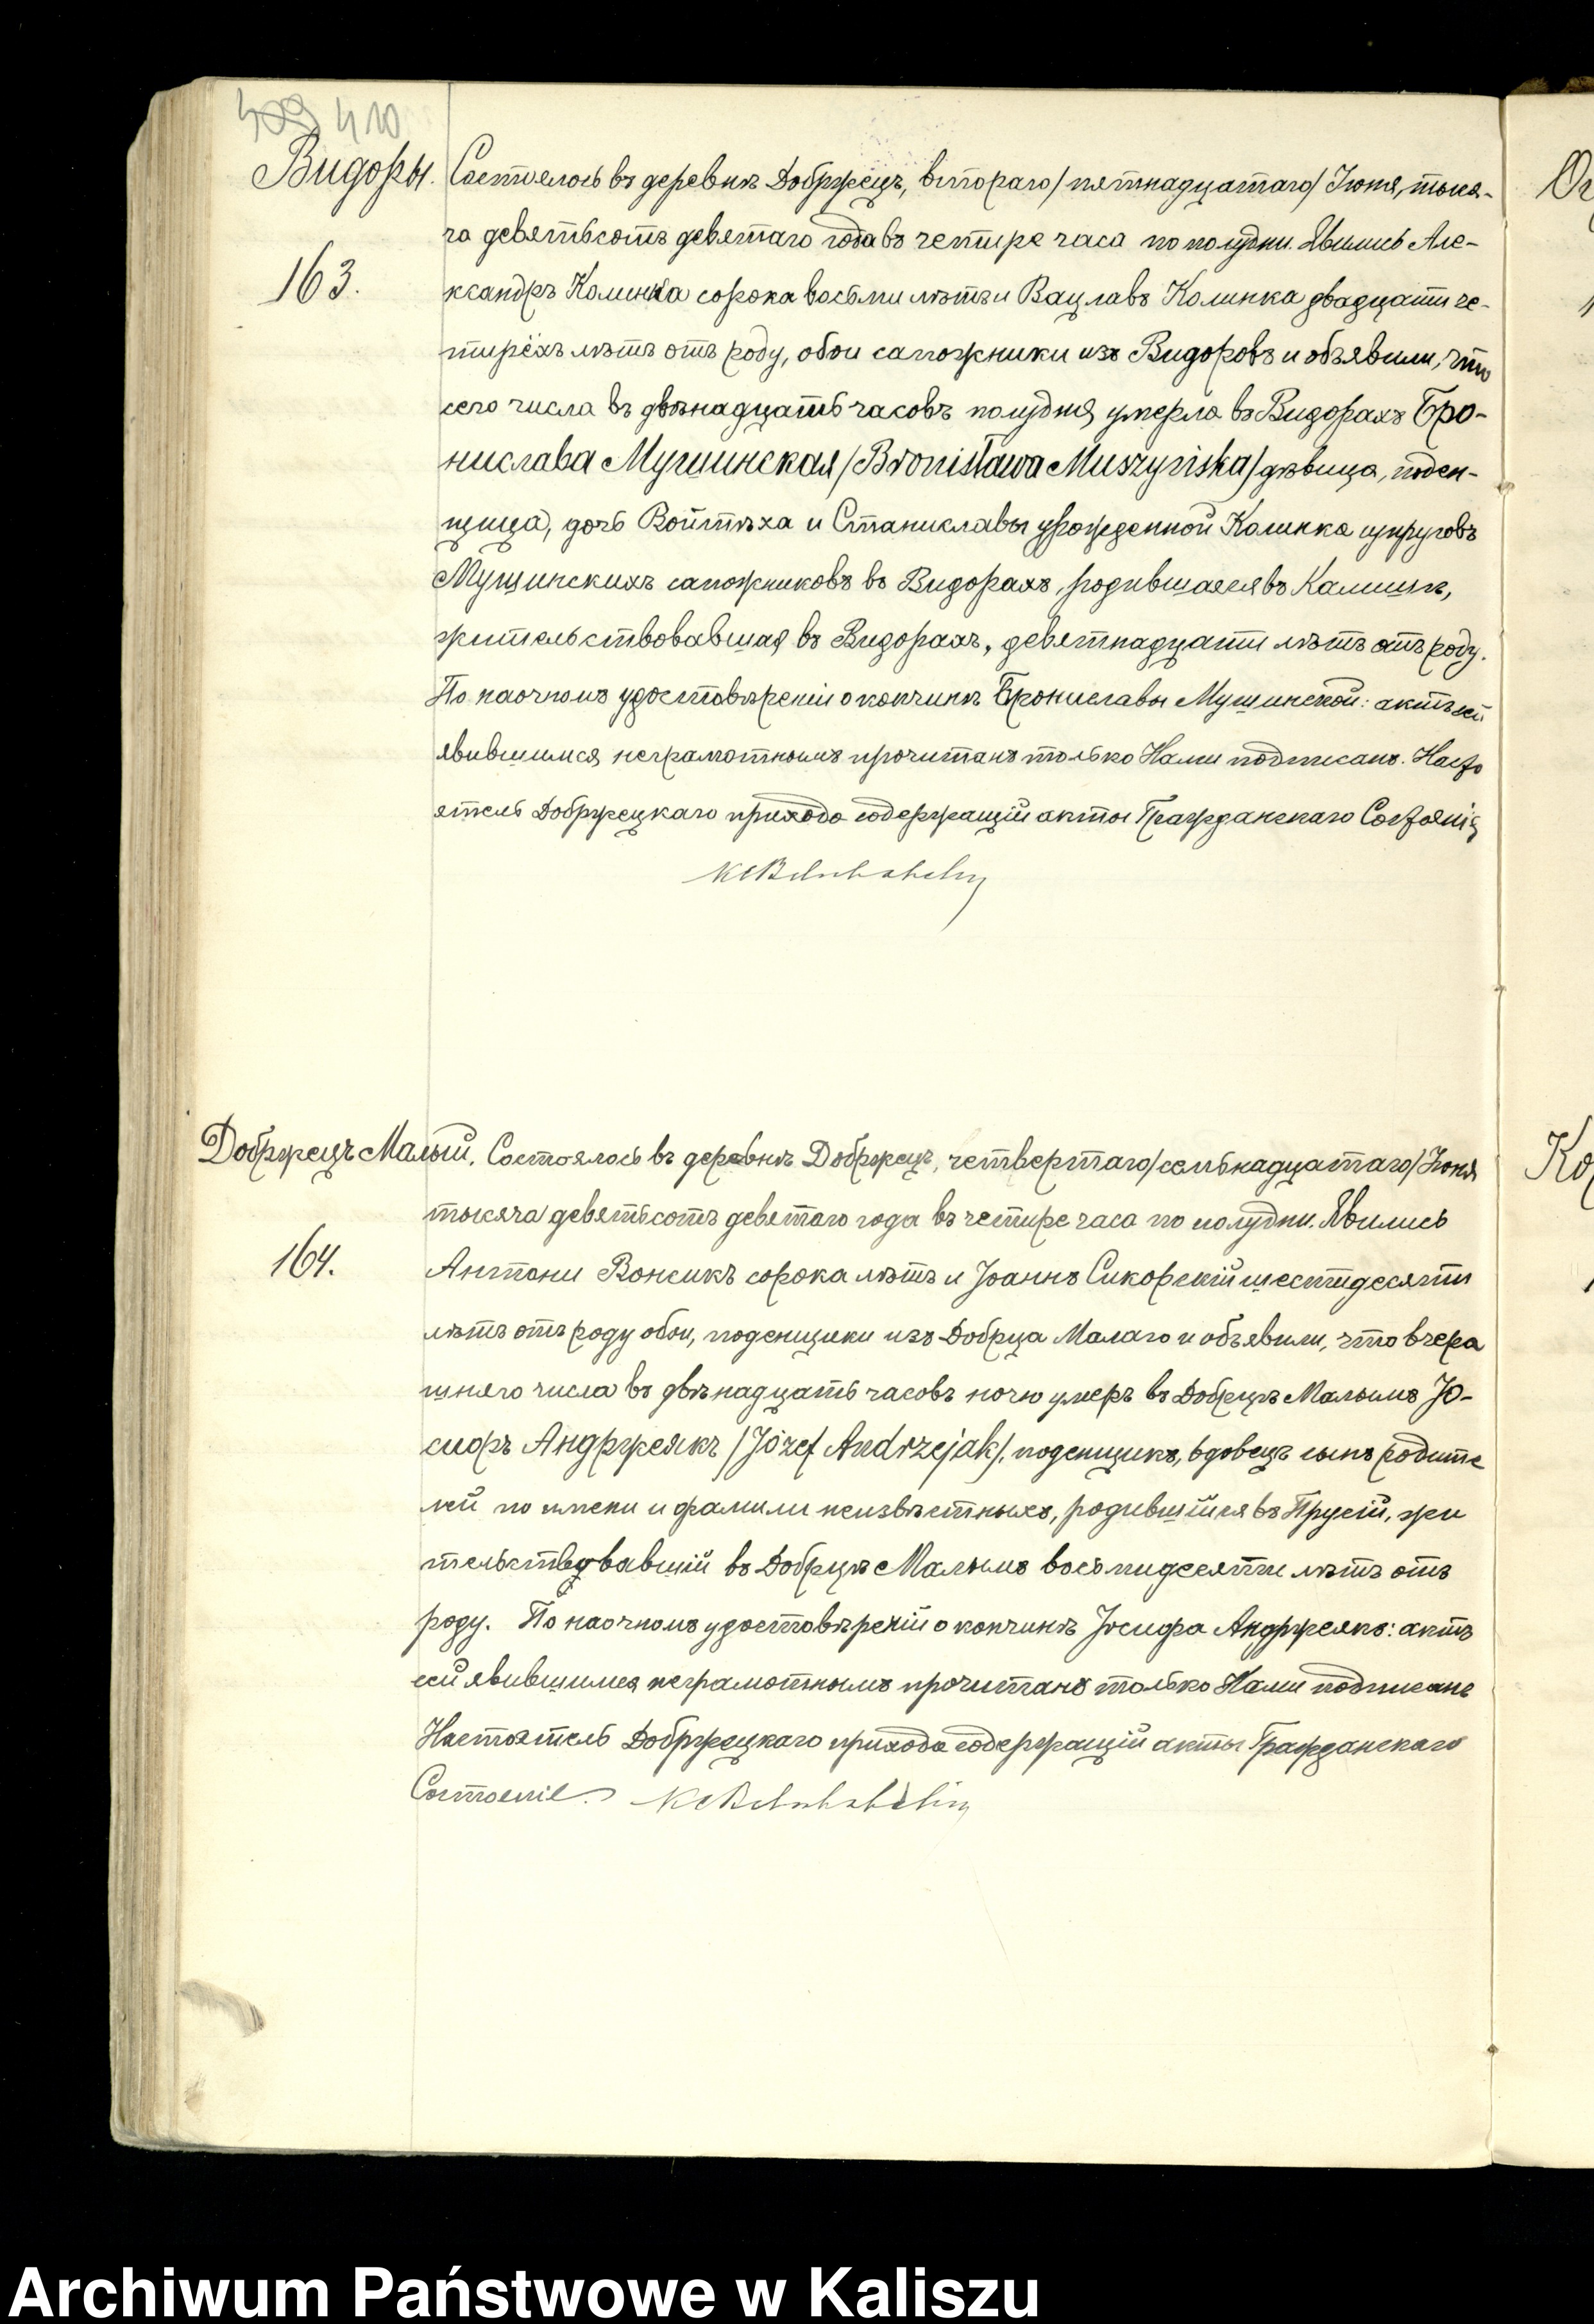 409 410
Видоры.
163.
Состоялось въ деревнѣ Добржецъ, второго/пятнадцатаго/Іюня, тыся-
ча девятьсотъ девятаго года въ четире часа по полудни. Явились Але-
ксандръ Калинка сорока восьми лѣтъ и Вацлавъ Калинка двадцати че-
тирёхъ лѣтъ отъ роду, обои сапожники изъ Видоровъ и объявили, что
сего числа въ двѣнадцать часовъ полудня умерла въ Видорахъ Бро-
нислава Мушинская/Bronisława Muszyńska/дѣвица, поден-
щица, дочь Войтѣха и Станиславы урожденной Калинка супруговъ
Мушинскихъ сапожниковъ въ Видорахъ, родившаяся въ Калишѣ,
жительствовавшая въ Видорахъ, девятнадцати лѣтъ отъ роду.
По наочномъ удостовѣреніи о кончинѣ Брониславы Мушинской: актъ сей
явившимся неграмотнымъ прочитанъ только Нами подписанъ. Насто
ятель Добржецкаго прихода содержащій акты Гражданскаго Состоянія
Добржецъ Малый.
164.
Состоялось въ деревнѣ Добржецъ, четвертаго/семьнадцатаго/Іюня
тысяча девятьсотъ девятаго года въ четире часа по полудни. Явились
Антони Вонсикъ сорока лѣтъ и Іоаннъ Сикорскій шестидесяти
лѣтъ отъ роду обои, поденщики изъ Добрца Малаго и объявили, что вчера
шняго числа въ двѣнадцать часовъ ночю умеръ въ Добрцѣ Малымъ Іо-
сифъ Андржеякъ/Józef Andrzejak/, поденщикъ, вдовецъ сынъ родите
лей по имени и фамили неизвѣстныхъ, родившійся въ Прусіи, жи
тельствовавшій въ Добрцѣ Малымъ восьмидесяти лѣтъ отъ
роду. По наочномъ удостовѣреніи о кончинѣ Іосифа Андржеякъ: актъ
сей явившимся неграмотнымъ прочитанъ только Нами подписанъ
Настоятель Добржецкаго прихода содержащій акты Гражданскаго
Состоянія.
Archiwum Państwowe w Kaliszu